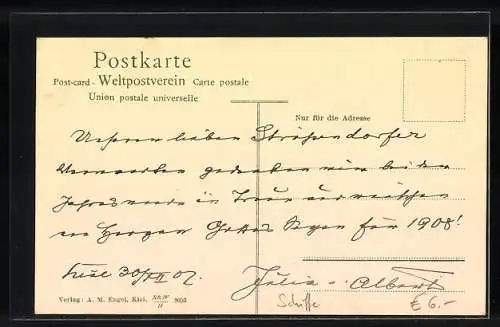 Postkarte
Post-card - Weltpostverein Carte postale
Union postale universelle
Nur für die Adresse
Unseren lieben Strößendorfer
Verwandten gedenken wir bei der
Jahreswende in Treue und wünschen
von Herzen Gottes Segen für 1908!
Kiel 30/XII 07.
Julia Albert
Verlag: A. M. Engel, Kiel.
Schiffe
€ 6.-